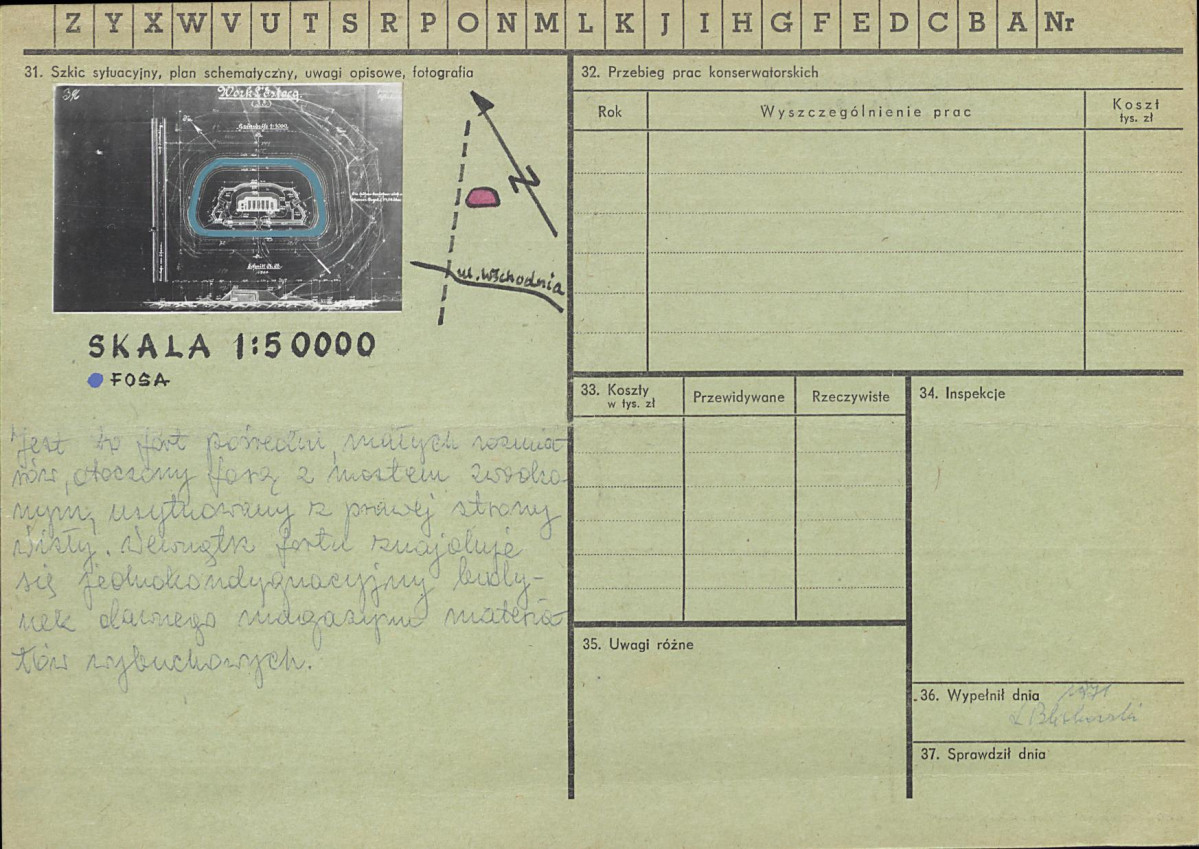 Z Y X W V U T S R P O N M L K J I H G F E D C B A Nr
31. Szkic sytuacyjny, plan schematyczny, uwagi opisowe, fotografia
ul. Wschodnia
SKALA 1:50000
FOSA
Jest to fort pośredni małych rozmia
rów, otoczony fosą z mostem zwodzo-
nym, usytuowany z prawej strony
Wisły. Wewnątk fortu znajduje
się jednokondygnacyjny budy-
nek dawnego magazynu materia
łów wybuchowych.
32. Przebieg prac konserwatorskich
Rok
Wyszczególnienie prac
Koszt
tys. zł
33. Koszty
w tys. zł
Przewidywane
Rzeczywiste
34. Inspekcje
35. Uwagi różne
36. Wypełnił dnia 1971
37. Sprawdził dnia